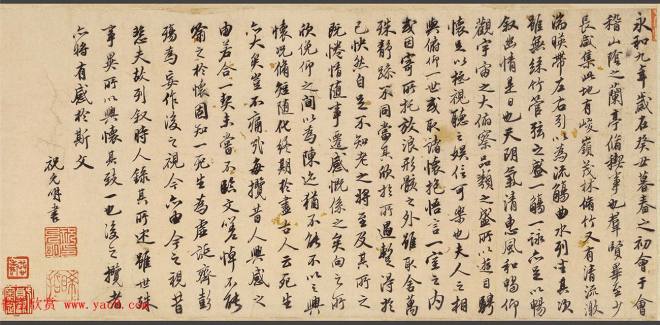 永和九年歲在癸丑暮春之初會于會
稽山陰之蘭亭脩禊事也群賢畢至少
長咸集此地有峻嶺茂林脩竹又有清流激
湍暎帶左右引以為流觴曲水列坐其次
雖無絲竹管弦之盛一觴一詠亦足以暢
敘幽情是日也天朗氣清惠風和暢仰
觀宇宙之大俯察品類之盛所以遊目騁
懷足以極視聽之娛信可樂也夫人之相
與俯仰一世或取諸懷抱悟言一室之內
或因寄所託放浪形骸之外雖取舍萬
殊靜躁不同當其欣於所遇蹔得於
己快然自足不知老之將至及其所之
既惓情隨事遷感慨係之矣向之所
欣俛仰之間以為陳迹猶不能不以之興
懷況脩短隨化終期於盡古人云死生
亦大矣豈不痛哉每攬昔人興感之
由若合一契未嘗不臨文嗟悼不能
喻之於懷固知一死生為虛誕齊彭
殤為妄作後之視今亦由今之視昔
悲夫故列敘時人錄其所述雖世殊
事異所以興懷其致一也後之攬者
亦將有感於斯文
祝允明書